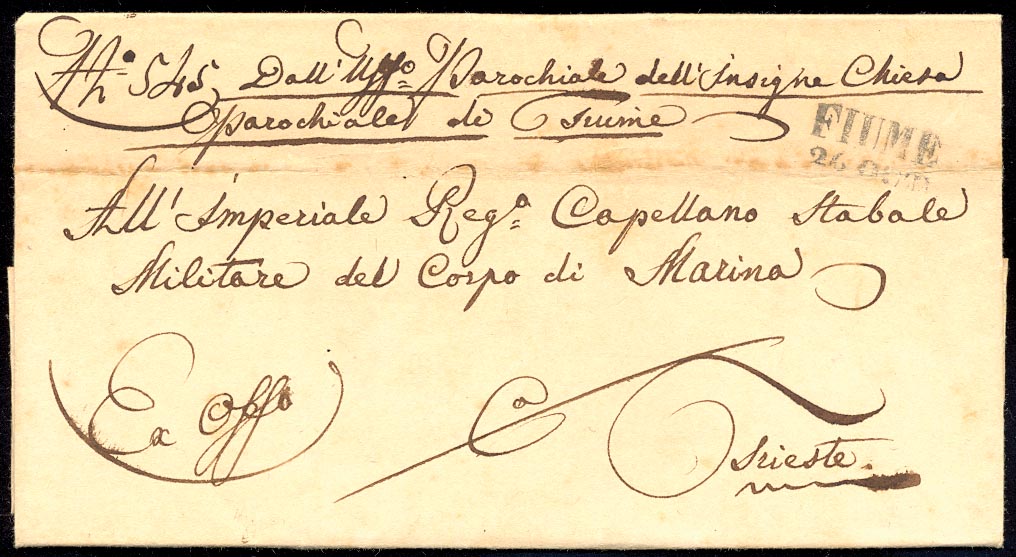 No. 545, Dall' Uffo. Parochiale dell' Insigne Chiesa
Parochiale di Fiume
FIUME
All' Imperiale Rega. Capellano Stabale
Militare del Corpo di Marina
Ex Offo
a
Trieste.